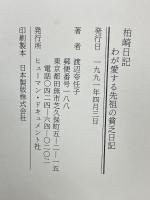 柏崎日記
わが愛する先祖の貧乏日記
発行日　一九九一年四月三日
著者　渡辺令任子
郵便番号一八八
東京都田無市芝久保町五-二一-一五
電話〇四二四-六四-〇二〇二
発行所　ヒューマン・ドキュメント社
印刷製本　日本製版株式会社